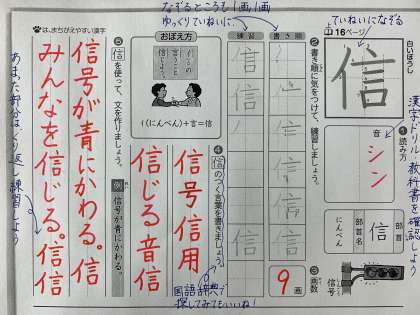 なぞるところも1画1画
ゆっくりていねいに。
ていねいになぞる
上 16ページ
白いぼうし
信
漢字ドリル 教科書を確認しよう
❶読み方
音
シン
部首
信
部首名
にんべん
❸画数
9画
信号
❷書き順に気をつけて、練習しましょう。
書き順
練習
信
❹信のつく言葉を書きましょう。
信号 信用
信じる 音信
国語辞典で
探してみてもいいね!
おぼえ方
信の
言うことを
信じる
イ(にんべん)+言=信
❺信を使って、文を作りましょう。
例 信号が青にかわる。
信号が青にかわる。信
みんなを信じる。信信
は、まちがえやすい漢字
あまった部分はくり返し練習しよう